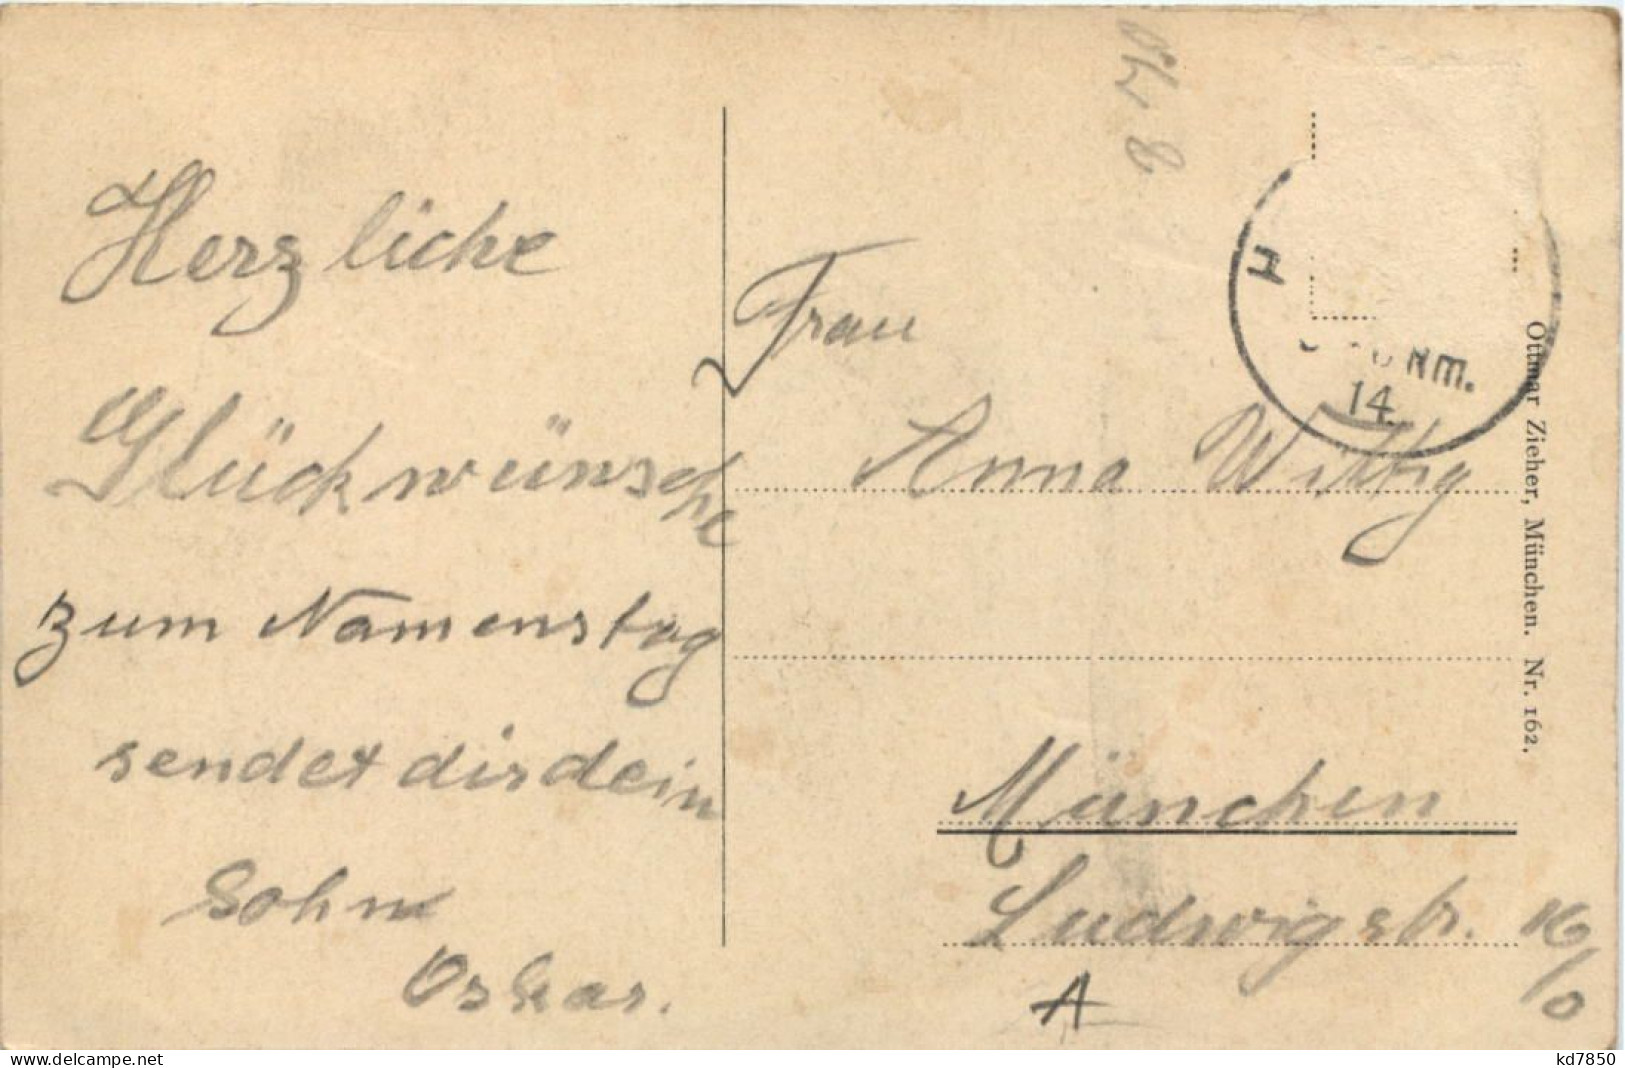 Herzliche
Glückwünsche
zum Namenstag
sendet dir dein
Sohn
Oskar.
Frau
Anna Wittig
München
Ludwigstr. 16/0
A
Nm.
14.
Ottmar Zieher, München. Nr. 162.
kd7850
www.delcampe.net